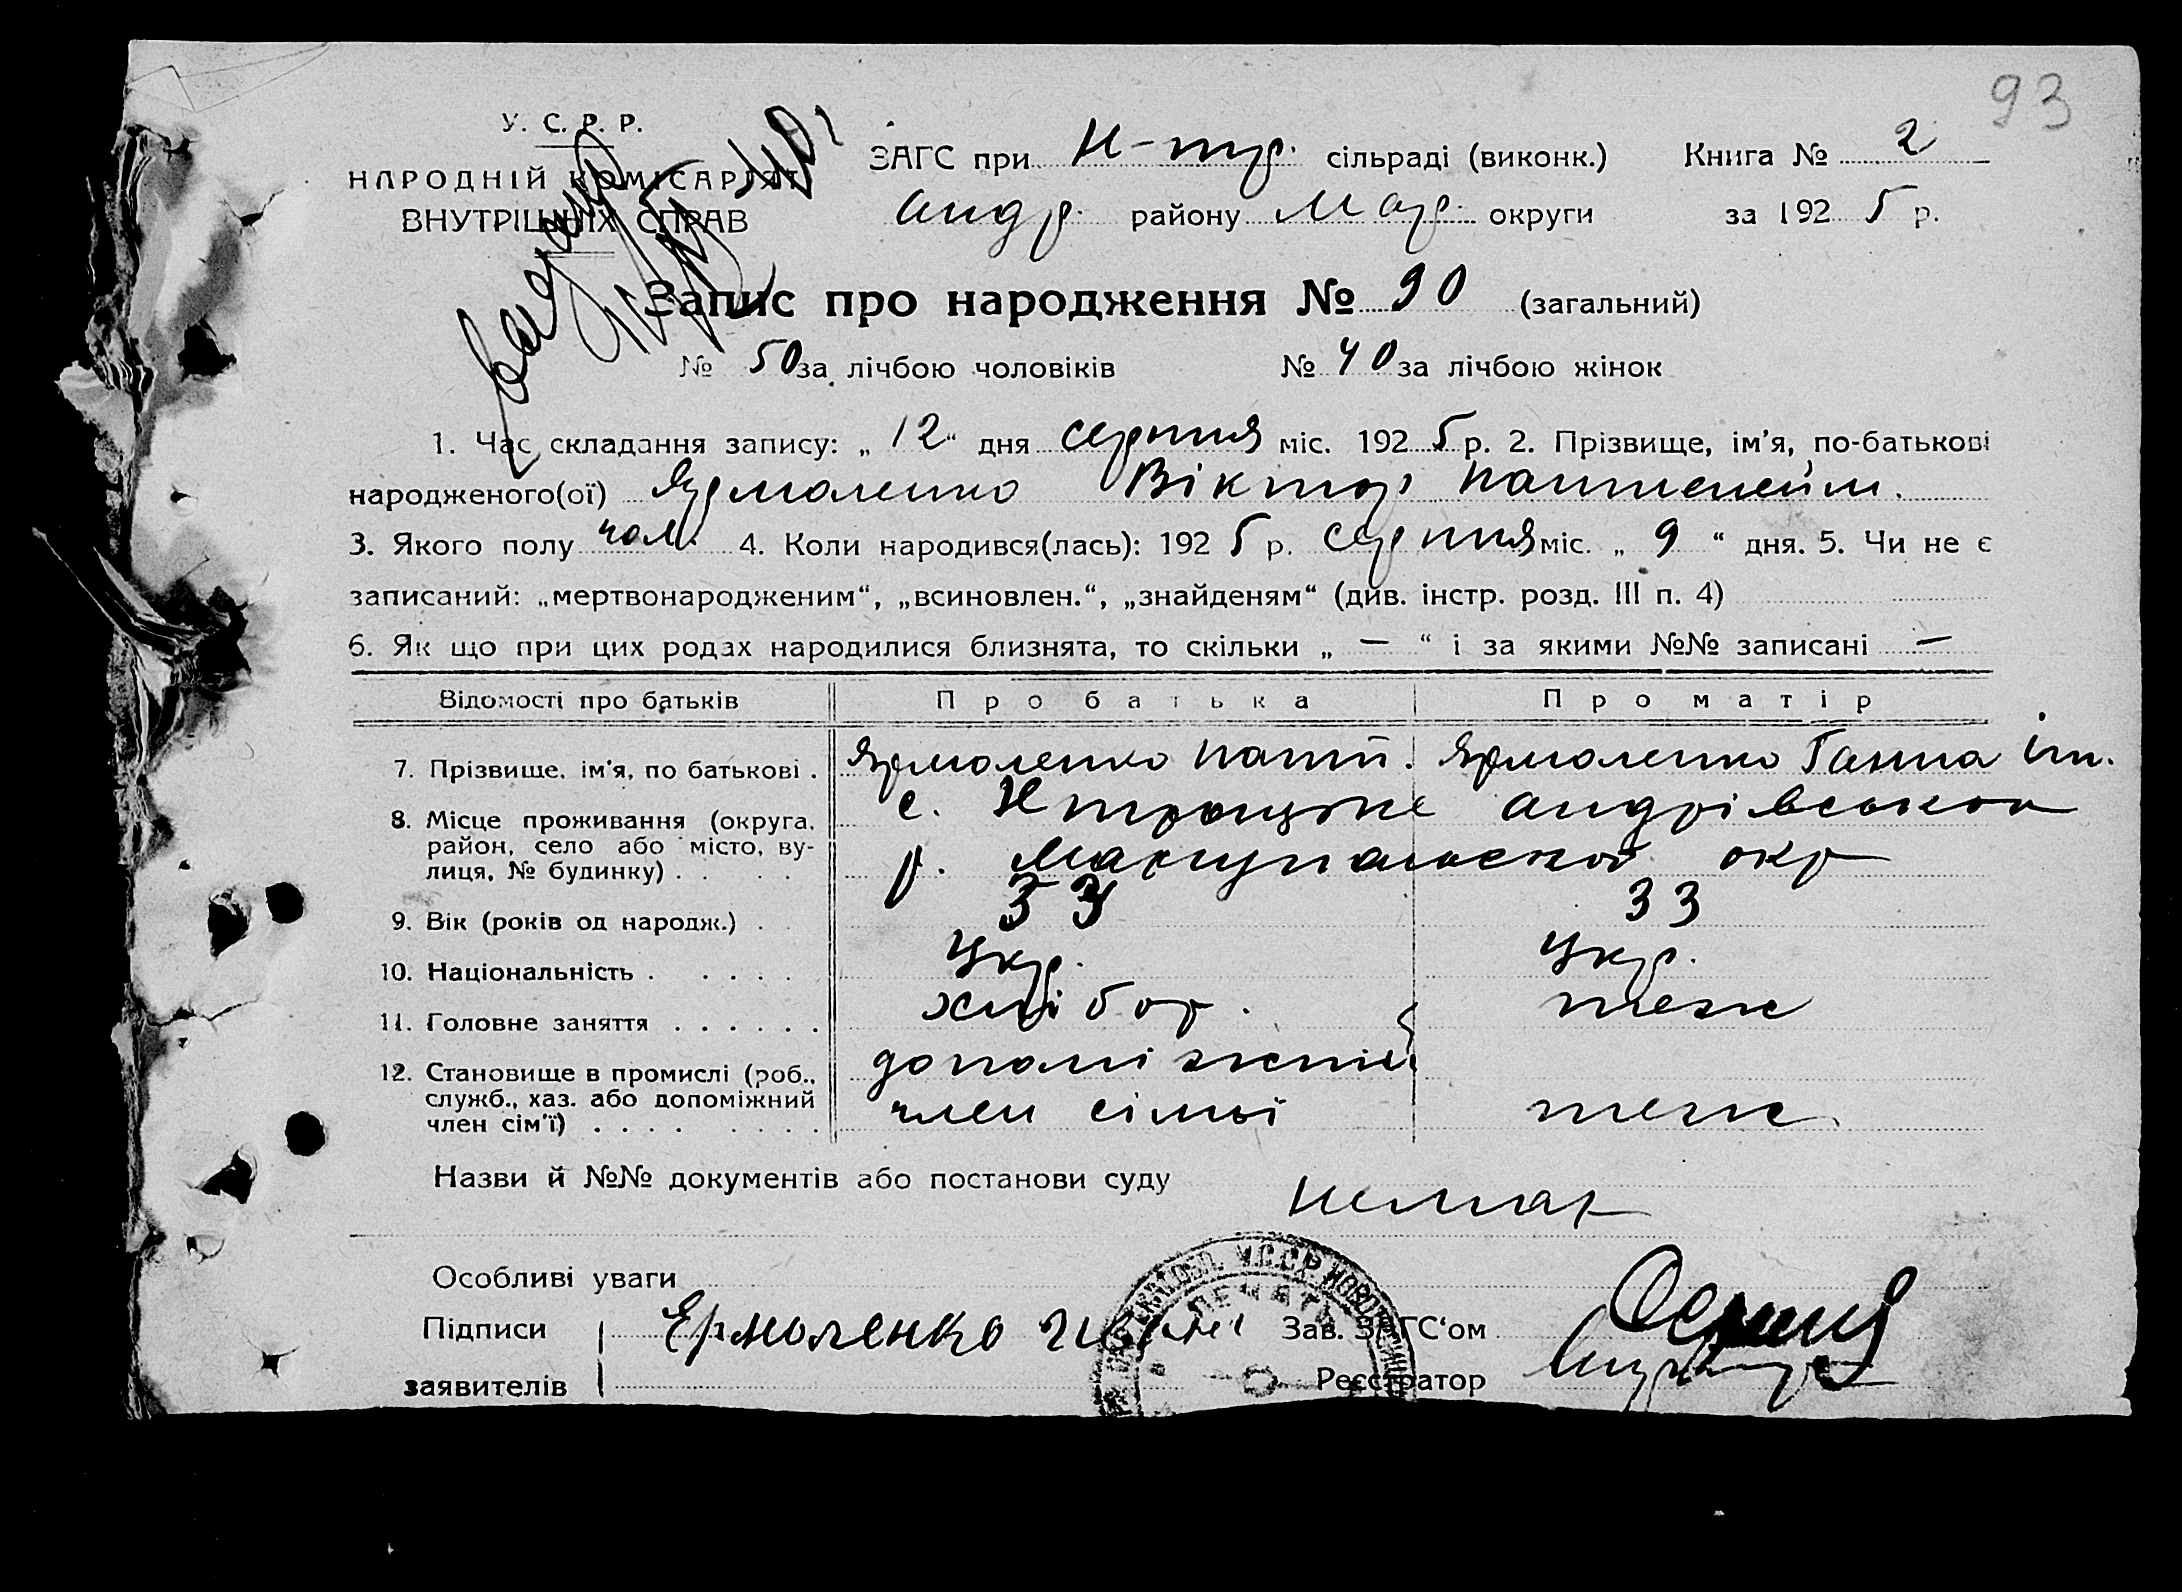 93
У. С. Р. Р.
НАРОДНІЙ КОМІСАРІЯТ
ВНУТРІШНІХ СПРАВ
ЗАГС при Н-тр. сільраді (виконк.) Книга № 2
Андр. району Мар. округи за 1925 р.
Запис про народження № 90 (загальний)
№ 50 за лічбою чоловіків № 40 за лічбою жінок
1. Час складання запису: „12“ дня серпня міс. 1925 р. 2. Прізвище, ім'я, по-батькові
народженого(ої) Ярмоленко Віктор
3. Якого полу чол. 4. Коли народився(лась): 1925 р. серпня міс. „9“ дня. 5. Чи не є
записаний: „мертвонародженим“, „всиновлен.“, „знайденям“ (див. інстр. розд. III п. 4)
6. Як що при цих родах народилися близнята, то скільки „ — “ і за якими №№ записані —
Відомості про батьків Про батька Про матір
7. Прізвище, ім'я, по батькові . Ярмоленко Пант. Ярмоленко Ганна
8. Місце проживання (округа, район, село або місто, вулиця, № будинку) . . с. Н троицьке Андрівськои
р. Маріупальской окр
9. Вік (років од народж.) . 33 33
10. Національність . . . . . Укр. Укр.
11. Головне заняття . . . . . . хлібор. теж
12. Становище в промислі (роб., служб., хаз. або допоміжний член сім'ї) . . . . . . . . допоміжний
член сімьї теж
Назви й №№ документів або постанови суду немає
Особливі уваги
Підписи Ермоленко Зав. ЗАГС'ом
заявителів Реєстратор
У.С.С.Р.
ПЕЧАТЬ